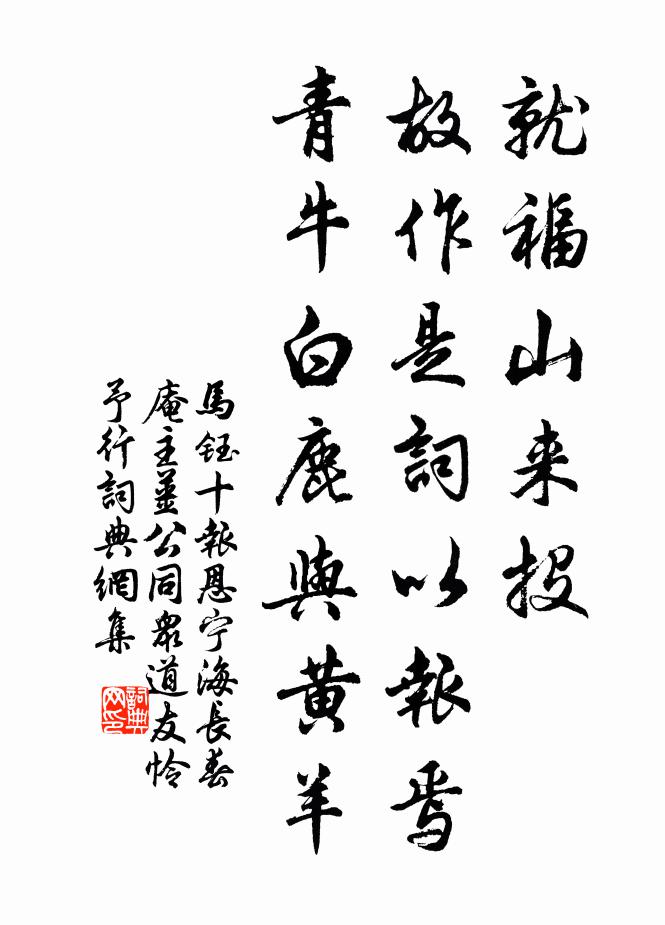 就福山来投
故作是詞以報焉
青牛白鹿與黄羊
馬鈺十報恩宁海長春
庵主薑公同衆道友怜
予行詞典網集
詞典网印